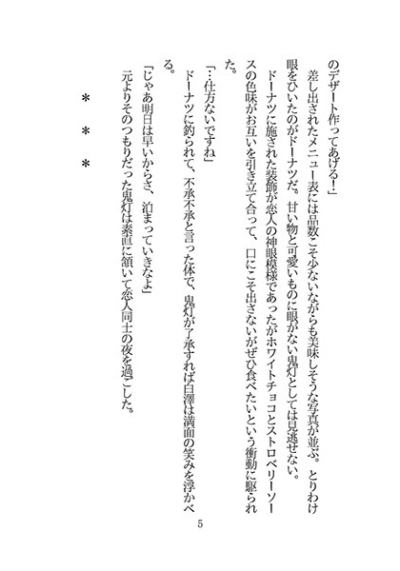 のデザート作ってあげる！」
　差し出されたメニュー表には品数こそ少ないながらも美味しそうな写真が並ぶ。とりわけ
眼をひいたのがドーナツだ。甘い物と可愛いものに眼がない鬼灯としては見逃せない。
　ドーナツに施された装飾が恋人の神眼模様であったがホワイトチョコとストロベリーソー
スの色味がお互いを引き立て合って、口にこそ出さないがぜひ食べたいという衝動に駆られ
た。
「…仕方ないですね」
　ドーナツに釣られて、不承不承と言った体で、鬼灯が了承すれば白澤は満面の笑みを浮かべ
る。
「じゃあ明日は早いからさ、泊まっていきなよ」
　元よりそのつもりだった鬼灯は素直に頷いて恋人同士の夜を過ごした。
＊　＊　＊
5